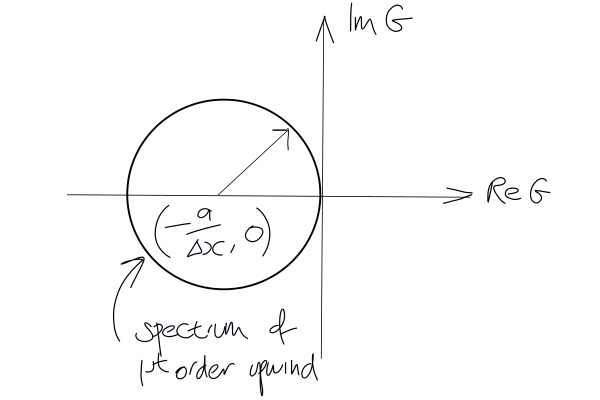 Im G
Re G
(-a/Δx, 0)
spectrum of
1st order upwind